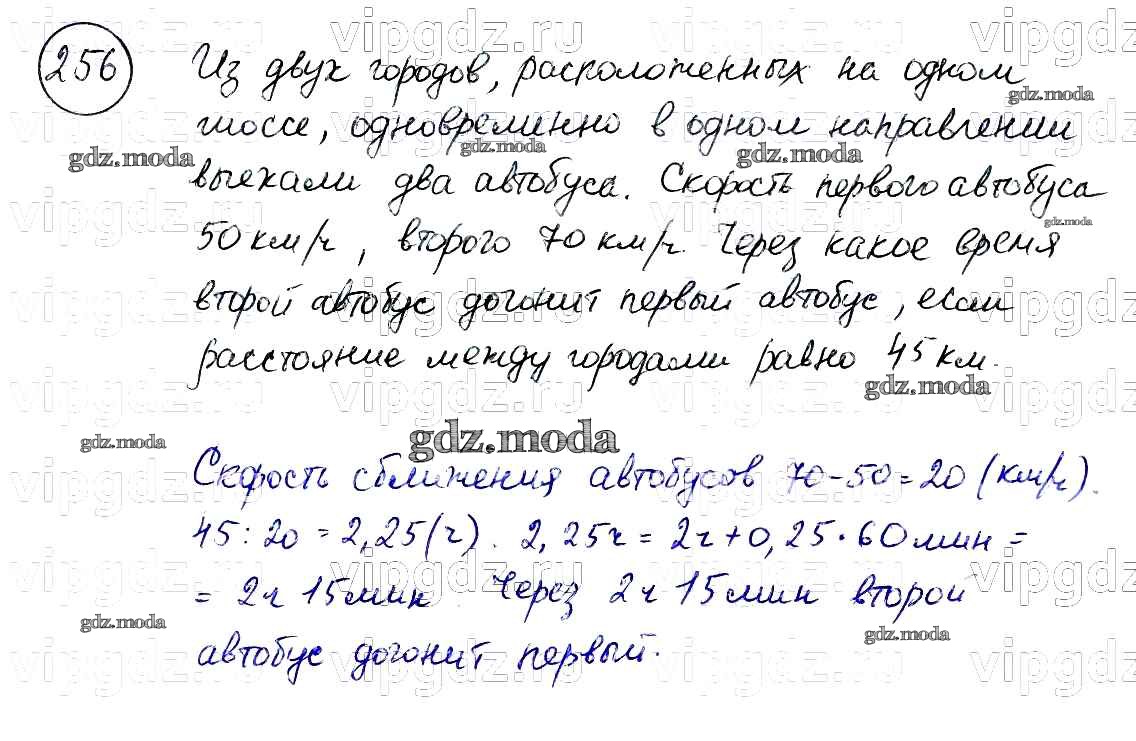 256
Из двух городов, расположенных на одном
шоссе, одновременно в одном направлении
выехали два автобуса. Скорость первого автобуса
50 км/ч, второго 70 км/ч. Через какое время
второй автобус догонит первый автобус, если
расстояние между городами равно 45 км.
Скорость сближения автобусов 70-50=20 (км/ч).
45:20=2,25(ч). 2,25ч=2ч+0,25•60мин=
=2ч 15мин. Через 2ч 15мин второй
автобус догонит первый.
vipgdz.ru
gdz.moda